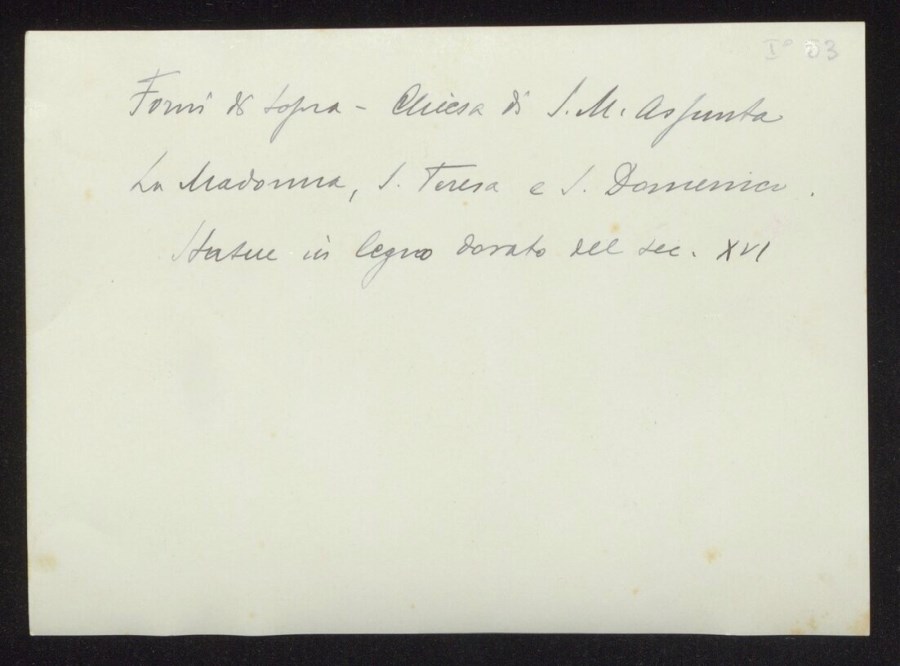 I° 53
Forni di sopra - Chiesa di S. M. Assunta
La Madonna, S. Teresa e S. Domenico.
Statue in legno dorato del sec. XVI